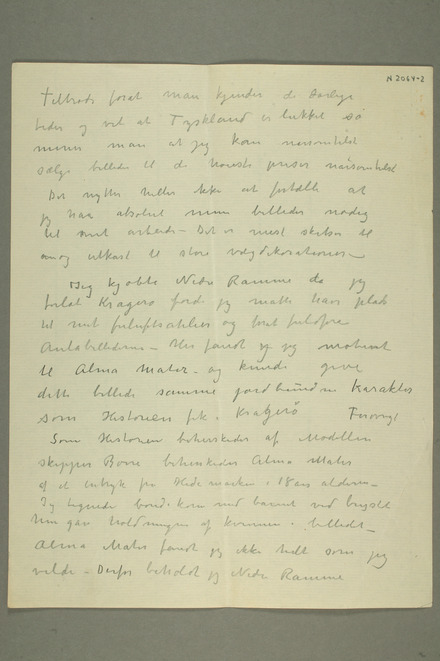 N 2064-2
tiltrods forat man kjender de daarlige
tider og vet at Tyskland er lukket så
mener man at jeg kan naarsomhelst
sælge billeder til de høieste priser naarsomhelst
Det nytter heller ikke at fortælle at
jeg har absolut mine billeder nødig
til mit arbeide – Det er mest skitser til
og utkast til store vægdekorationer –
Jeg kjøbte Nedre Ramme da jeg
forlot Kragerø fordi jeg måtte have plads
til mit friluftsatelier og fordi fuldføre
Aulabillederne – Her fandt jeg motivet
til Alma Mater – og kunde give
dette billede samme jordbundne Karakter
som Historien fik i Kragerø
Som Historien beherskedes af Modellen
skipper Børre beherskedes Alma Mater
af et indtryk fra Hedemarken i 18 års alderen –
En bondekone med barnet ved brystet
Hun gav holdningen af kvinnen i billedet –
Alma Mater fandt jeg ikke helt som jeg
vilde – Derfor beholdt jeg Nedre Ramme